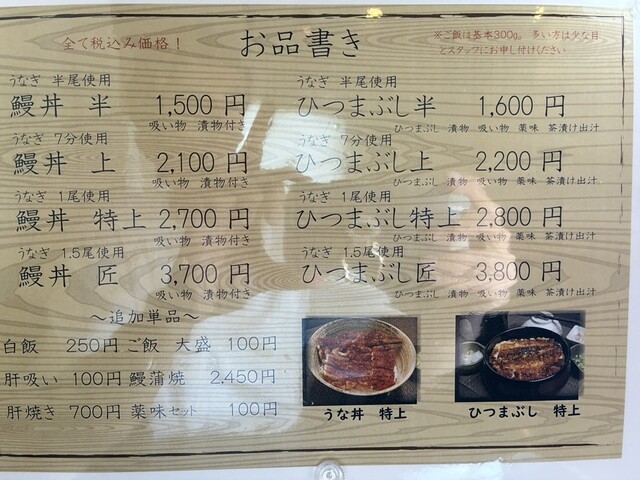 全て税込み価格!
お品書き
※ご飯は基本300g。多い方は少な目
とスタッフにお申し付けください
うなぎ 半尾使用
鰻丼 半 1,500円
吸い物 漬物付き
うなぎ 7分使用
鰻丼 上 2,100円
吸い物 漬物付き
うなぎ 1尾使用
鰻丼 特上 2,700円
吸い物 漬物付き
うなぎ 1.5尾使用
鰻丼 匠 3,700円
吸い物 漬物付き
うなぎ 半尾使用
ひつまぶし半 1,600円
ひつまぶし 漬物 吸い物 薬味 茶漬け出汁
うなぎ 7分使用
ひつまぶし上 2,200円
ひつまぶし 漬物 吸い物 薬味 茶漬け出汁
うなぎ 1尾使用
ひつまぶし特上 2,800円
ひつまぶし 漬物 吸い物 薬味 茶漬け出汁
うなぎ 1.5尾使用
ひつまぶし匠 3,800円
ひつまぶし 漬物 吸い物 薬味 茶漬け出汁
~追加単品~
白飯 250円 ご飯 大盛 100円
肝吸い 100円 鰻蒲焼 2,450円
肝焼き 700円 薬味セット 100円
うな丼 特上
ひつまぶし 特上